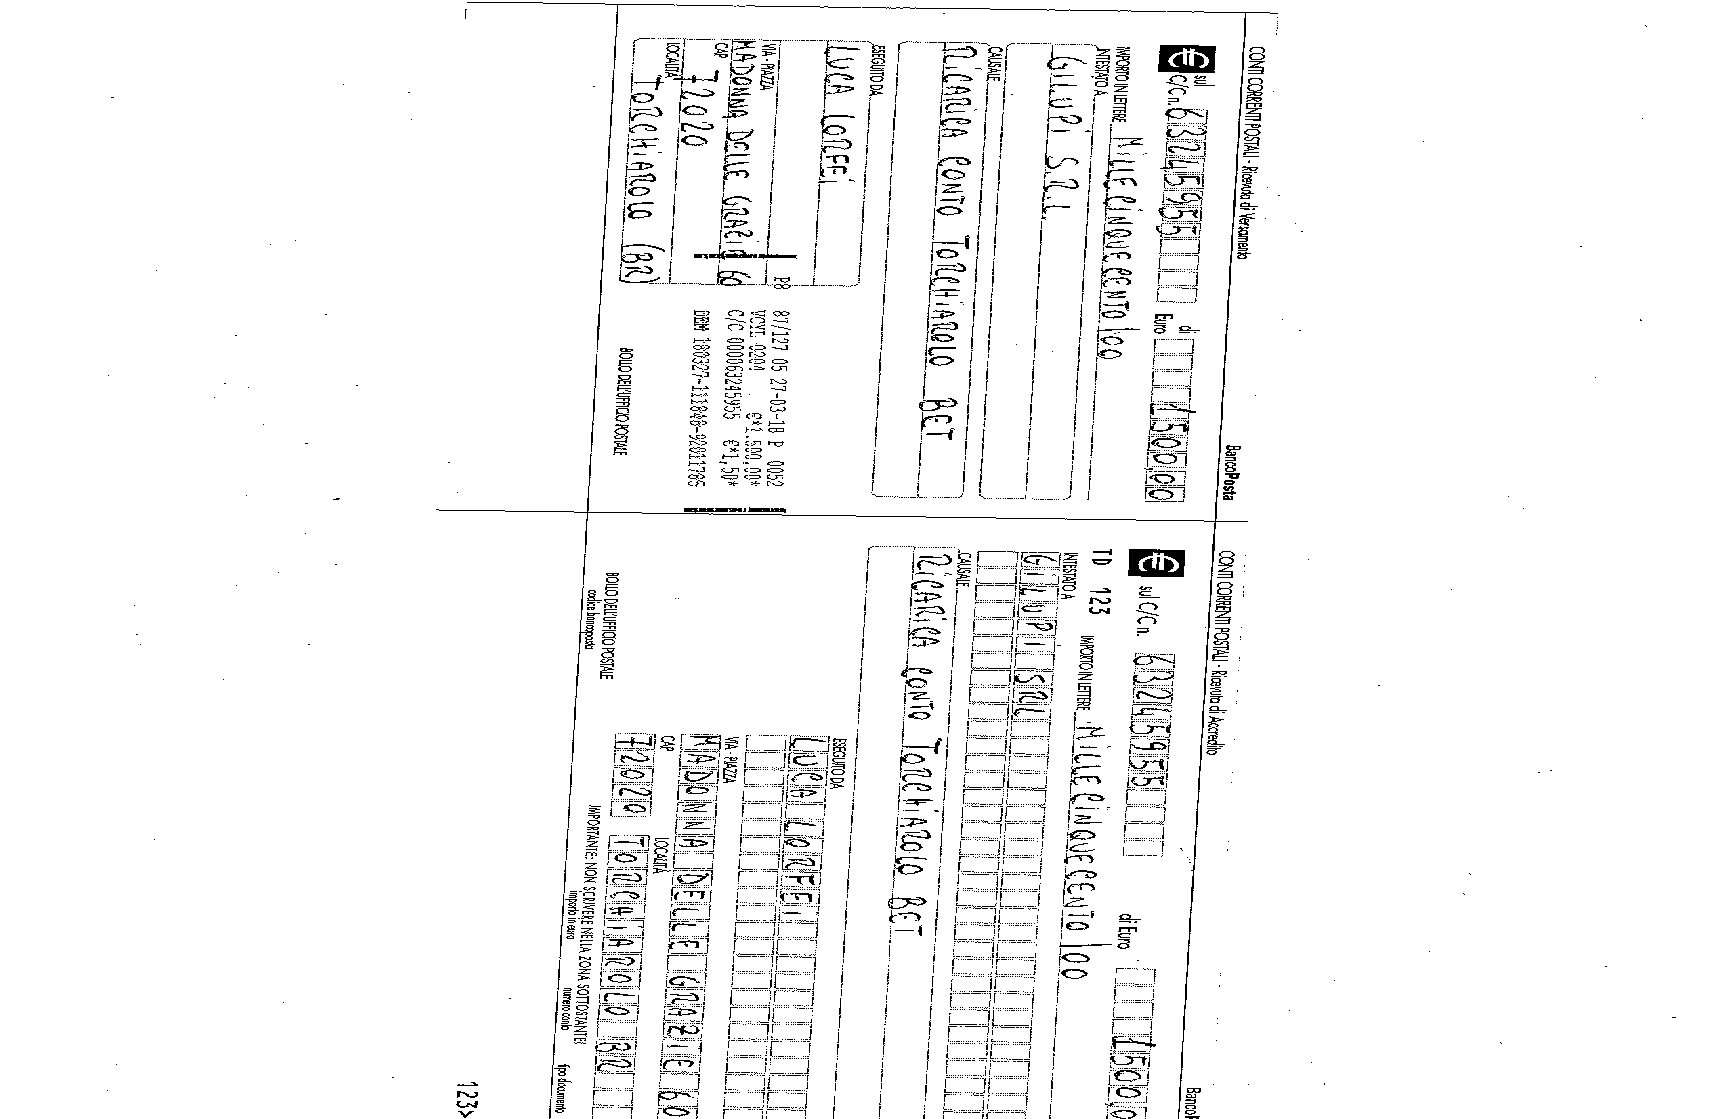 CONTI CORRENTI POSTALI - Ricevuta di Versamento
BancoPosta
€ sul C/C n. 63245955 di Euro 1500,00
IMPORTO IN LETTERE MILLECINQUECENTO/00
INTESTATO A
GILUPI S.R.L.
CAUSALE
RICARICA CONTO TORCHIAROLO BET
ESEGUITO DA
LUCA LORFEI
VIA - PIAZZA
MADONNA DELLE GRAZIE 60
CAP
72020
LOCALITÀ
TORCHIAROLO (BR)
87/127 05 27-03-18 P 0052
VCYL 0201 €*1.500,00*
C/C 000063245955 €*1,50*
BOLLO DELL'UFFICIO POSTALE
CONTI CORRENTI POSTALI - Ricevuta di Accredito
€ sul C/C n. 63245955 di Euro 1500,0
TD 123 IMPORTO IN LETTERE MILLECINQUECENTO/00
INTESTATO A
GILUPI SRL
CAUSALE
RICARICA CONTO TORCHIAROLO BET
ESEGUITO DA
LUCA LORFEI
VIA - PIAZZA
MADONNA DELLE GRAZIE 60
CAP LOCALITÀ
72020 TORCHIAROLO BR
BOLLO DELL'UFFICIO POSTALE
codice bancoposta
IMPORTANTE: NON SCRIVERE NELLA ZONA SOTTOSTANTE!
importo in euro numero conto tipo documento
123>